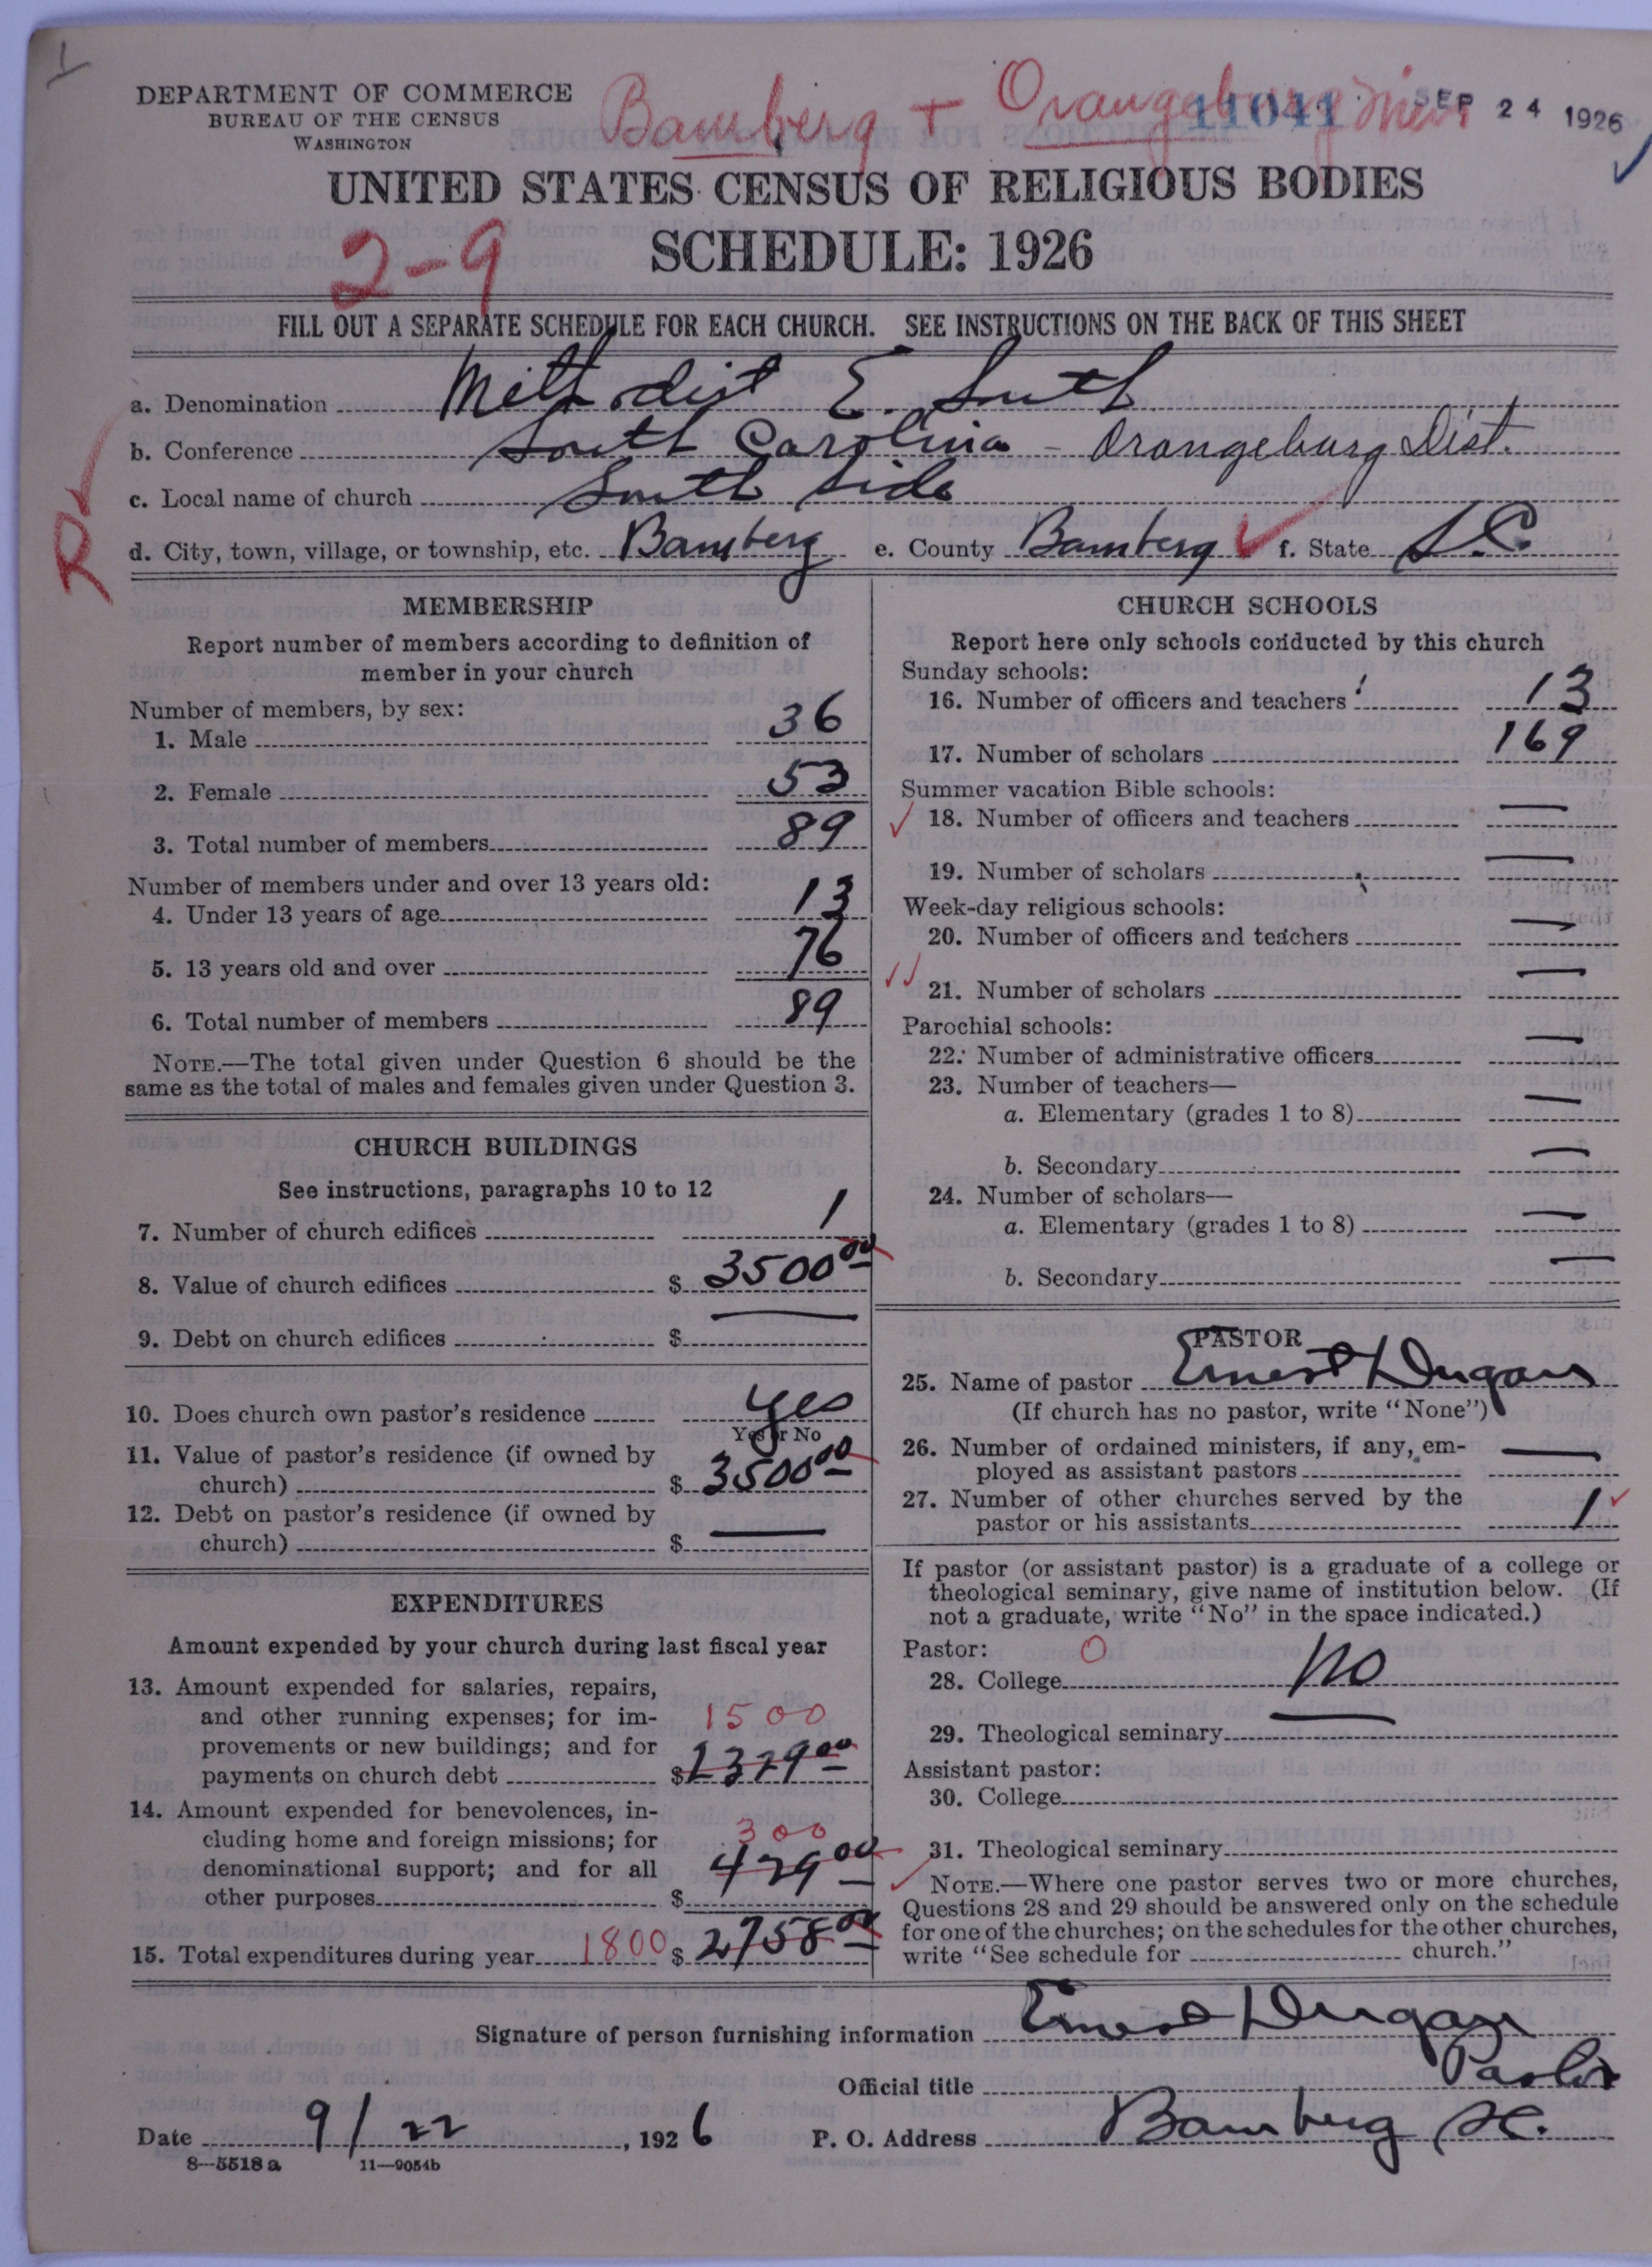 1
DEPARTMENT OF COMMERCE
BUREAU OF THE CENSUS
WASHINGTON
Bamberg + Orangeburg
11041
SEP 24 1926
UNITED STATES CENSUS OF RELIGIOUS BODIES
SCHEDULE: 1926
2-9
FILL OUT A SEPARATE SCHEDULE FOR EACH CHURCH. SEE INSTRUCTIONS ON THE BACK OF THIS SHEET
a. Denomination Methodist E. South
b. Conference South Carolina - Orangeburg Dist.
c. Local name of church South Side
R
d. City, town, village, or township, etc. Bamberg e. County Bamberg f. State S.C.
MEMBERSHIP
Report number of members according to definition of
member in your church
Number of members, by sex:
1. Male 36
2. Female 53
3. Total number of members 89
Number of members under and over 13 years old:
4. Under 13 years of age 13
5. 13 years old and over 76
6. Total number of members 89
NOTE.—The total given under Question 6 should be the
same as the total of males and females given under Question 3.
CHURCH BUILDINGS
See instructions, paragraphs 10 to 12
7. Number of church edifices 1
8. Value of church edifices $ 3500 00
9. Debt on church edifices $ —
10. Does church own pastor's residence Yes
Yes or No
11. Value of pastor's residence (if owned by
church) $ 3500 00
12. Debt on pastor's residence (if owned by
church) $ —
EXPENDITURES
Amount expended by your church during last fiscal year
13. Amount expended for salaries, repairs,
and other running expenses; for im- 1500
provements or new buildings; and for
payments on church debt $ 2329 00
14. Amount expended for benevolences, in-
cluding home and foreign missions; for 300
denominational support; and for all 429 00
other purposes $
15. Total expenditures during year 1800 $ 2758 00
CHURCH SCHOOLS
Report here only schools conducted by this church
Sunday schools:
16. Number of officers and teachers 13
17. Number of scholars 169
Summer vacation Bible schools:
18. Number of officers and teachers —
19. Number of scholars —
Week-day religious schools:
20. Number of officers and teachers —
21. Number of scholars —
Parochial schools:
22. Number of administrative officers —
23. Number of teachers—
a. Elementary (grades 1 to 8) —
b. Secondary —
24. Number of scholars—
a. Elementary (grades 1 to 8) —
b. Secondary —
PASTOR
25. Name of pastor Ernest Dugan
(If church has no pastor, write "None")
26. Number of ordained ministers, if any, em-
ployed as assistant pastors —
27. Number of other churches served by the
pastor or his assistants 1
If pastor (or assistant pastor) is a graduate of a college or
theological seminary, give name of institution below. (If
not a graduate, write "No" in the space indicated.)
Pastor: 0
28. College no
29. Theological seminary —
Assistant pastor:
30. College
31. Theological seminary
NOTE.—Where one pastor serves two or more churches,
Questions 28 and 29 should be answered only on the schedule
for one of the churches; on the schedules for the other churches,
write "See schedule for church."
Signature of person furnishing information Ernest Dugan
Official title Pastor
Date 9/22, 1926 P. O. Address Bamberg SC.
8—5518 a 11—9054b